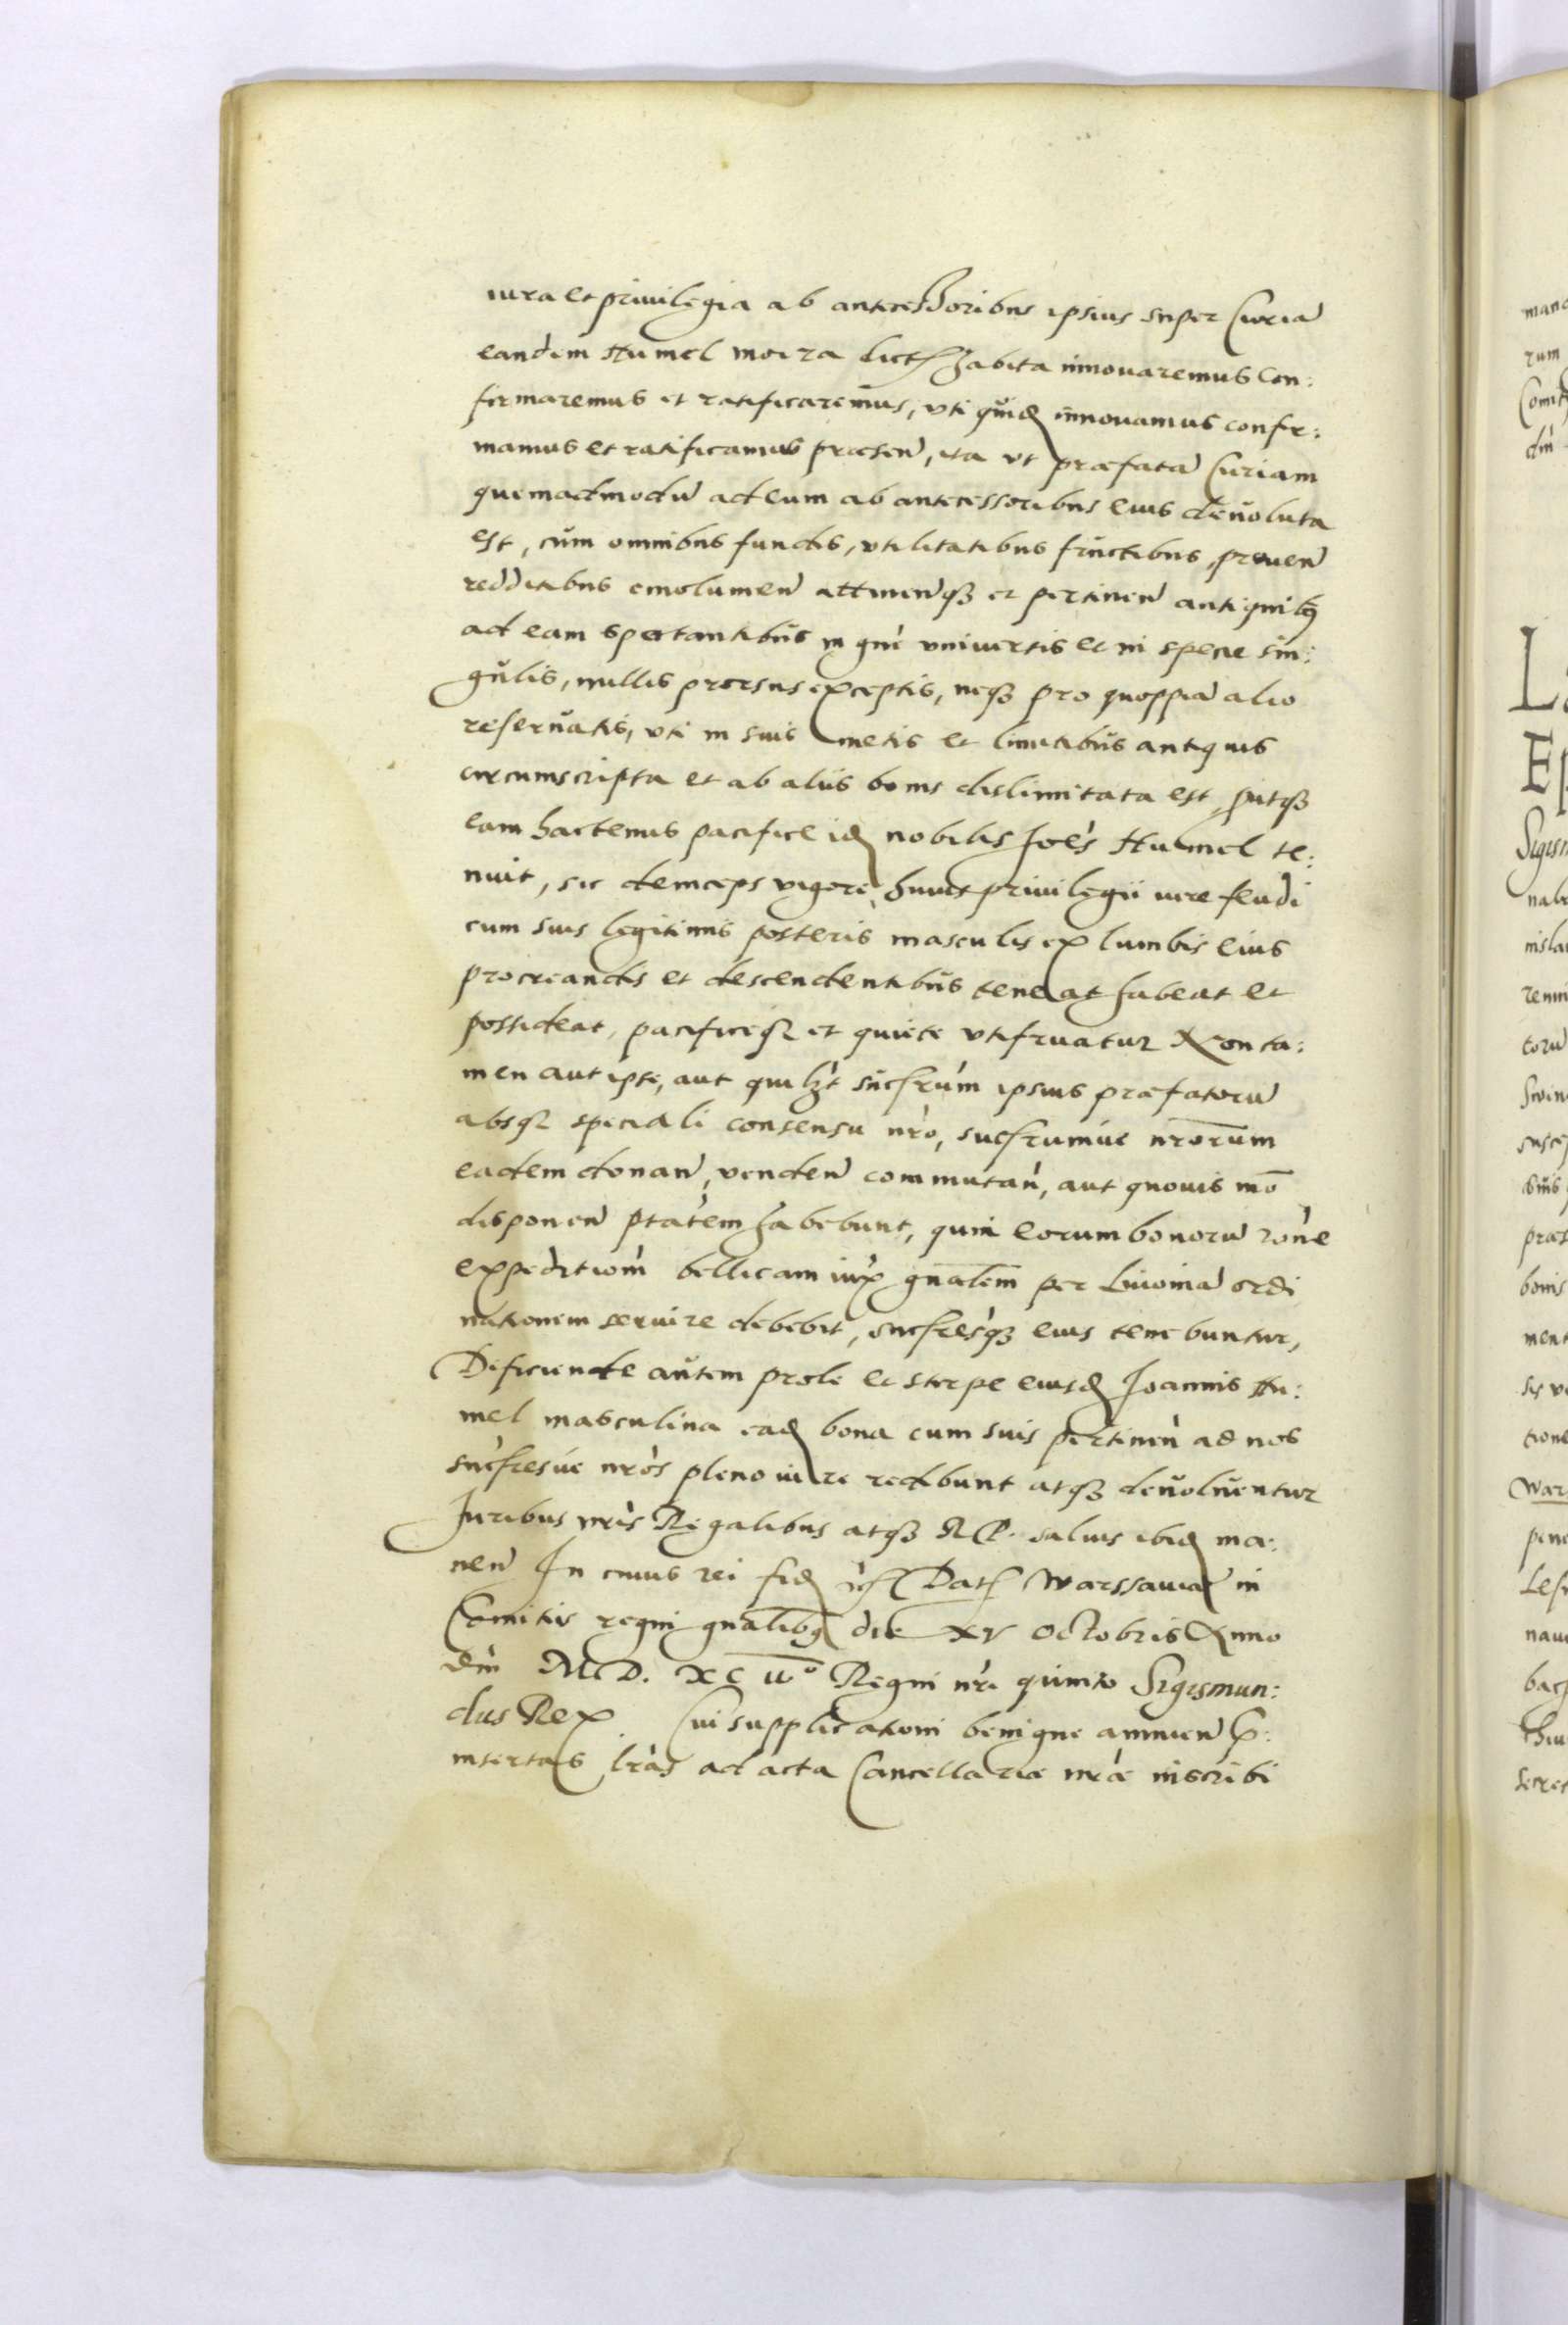 iura et priuilegia ab antecessoribus ipsius super Curia
eandem Humel moiza dict habita innouaremus con:
firmaremus et ratificaremus, vti quid innouamus confir:
mamus et ratificamus praesen, ita vt praefata Curiam
quemadmodu ad eum ab antecessoribus eius deuoluta
est, cum omnibus fundis, vtilitatibus fructibus, prouen
redditibus emolumen attinenq3 et pertinen antiquib9
ad eam spectantibus in gne vniuersis et in specie sin:
gulis, nullis prorsus exceptis, neq3 pro quoppia alio
reseruatis, vti in suis metis et limitibus antiquis
circumscripta et ab aliis bonis dislimitata est, putq3
eam hactenus pacifice id nobilis Joes Humel te:
nuit, sic deinceps vigore huius priuilegii iure feudi
cum suis legitimis posteris masculis ex lumbis eius
procreandis et descendentibus teneat habeat et
possideat, pacificeq3 et quiete vtifruatur Non ta:
men aut ipse, aut quilzt sucsrum ipsius praefatoru
absq3 speciali consensu nro, sucsrumue nrorum
eadem donan, venden commutan, aut quouis mo
disponen ptatem habebunt, quin eorum bonoru rone
expeditiom bellicam iux gnalem per Liuonia ordi
nationem seruire debebit, sucsresq3 eius tenebuntur,
Deficiente autem prole et stirpe eiusd Joannis Hu:
mel masculina ead bona cum suis pertinen ad nos
sucsresue nros pleno iure redibunt atq3 deuoluentur
Juribus nris Regalibus atq3 R P. saluis ibid ma:
nen In cuius rei fid Dat Warssauiae in
Comitiis regni gnalib9 die XV Octobris Anno
dni M D. XC IIo Regni nri quinto Sigismun:
dus Rex Cui supplicationi benigne annuen
insertas lras ad acta Cancellariae nrae inscribi